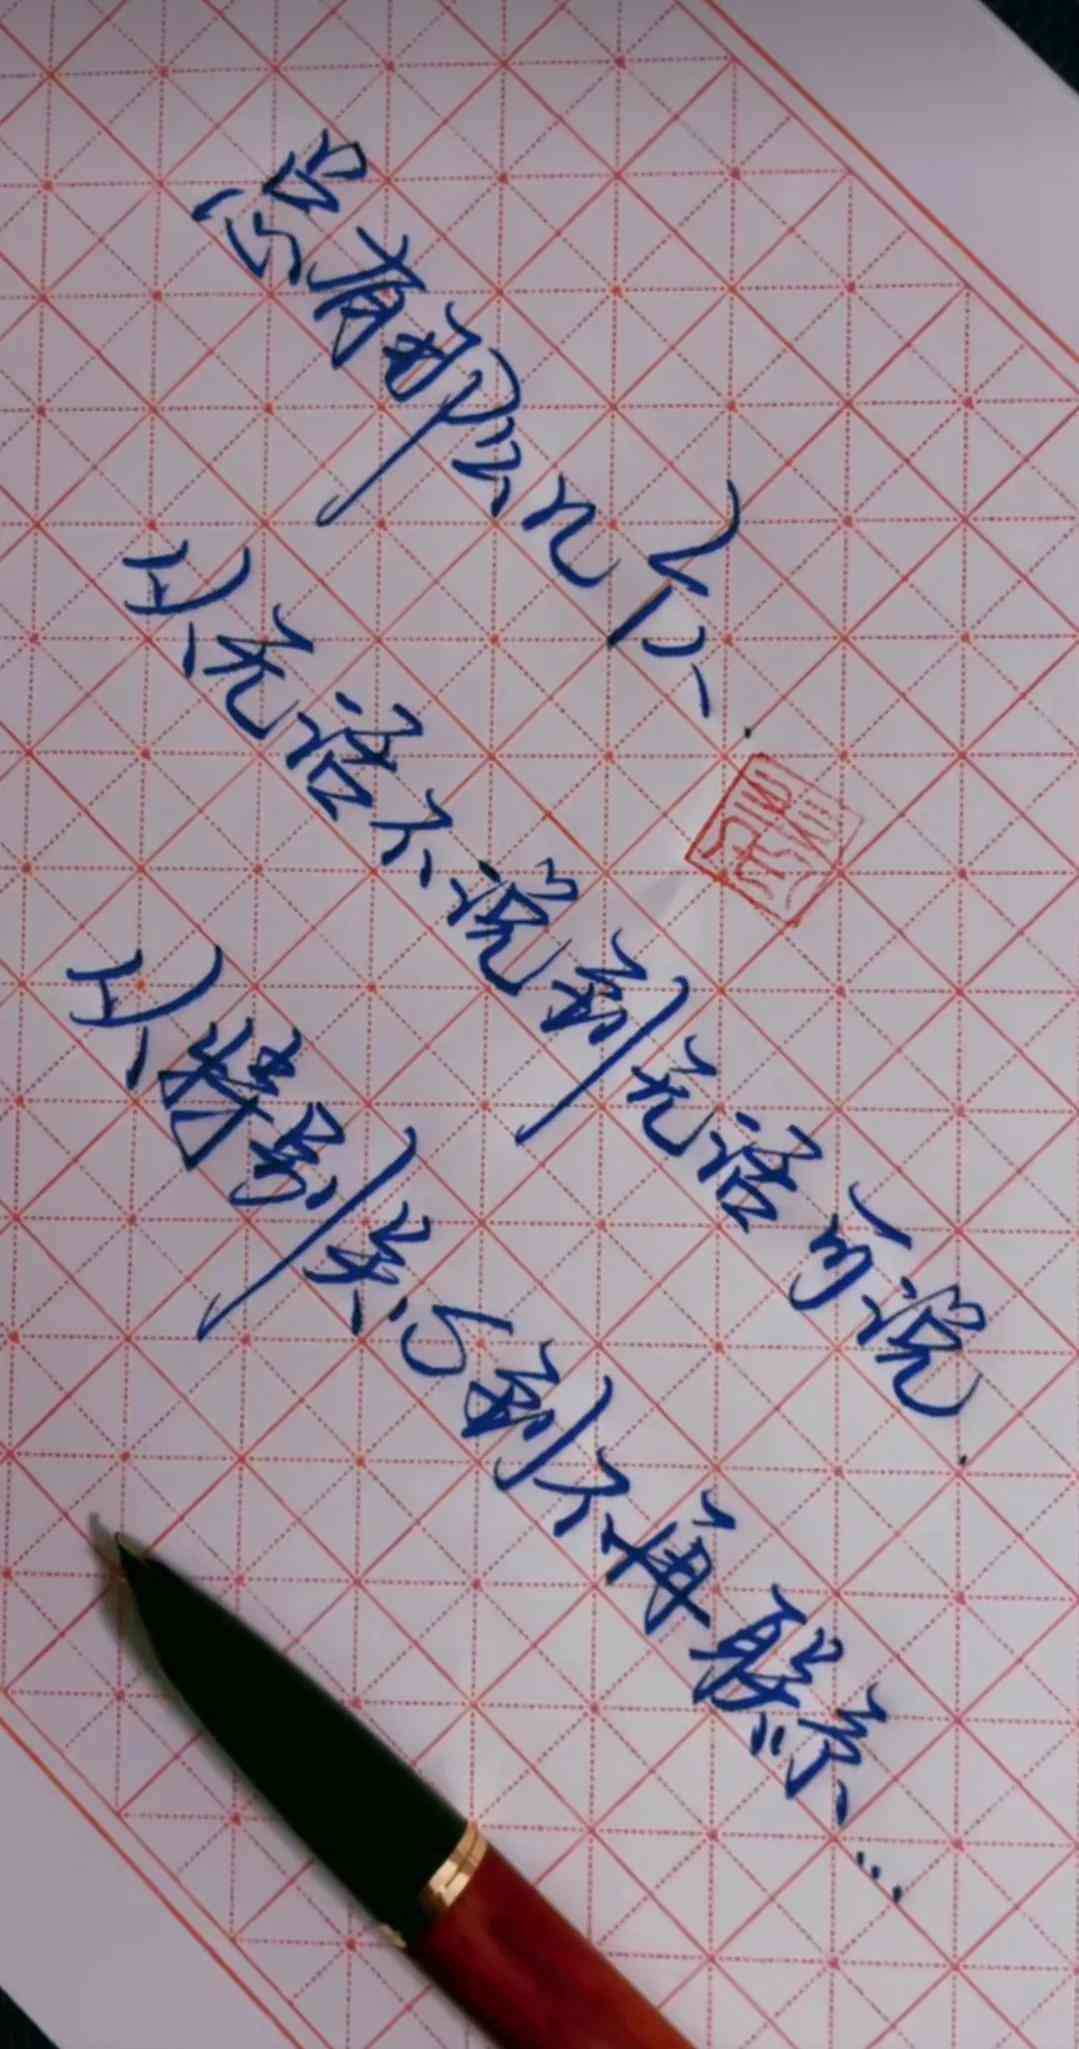 总有那么几个人.
从无话不说到无话可说.
从特别关心到不再联系...